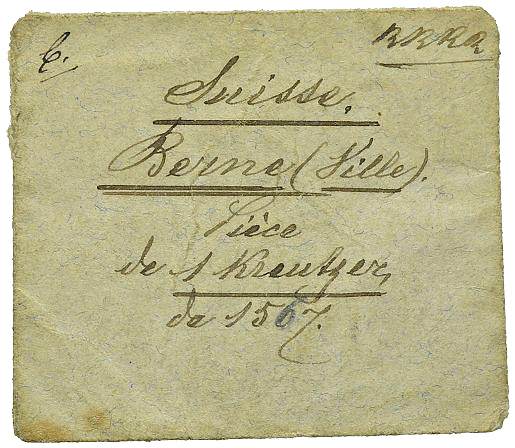 C. RRRR
Suisse.
Berne (Ville).
Pièce
de 1 Kreutzer,
de 1567.